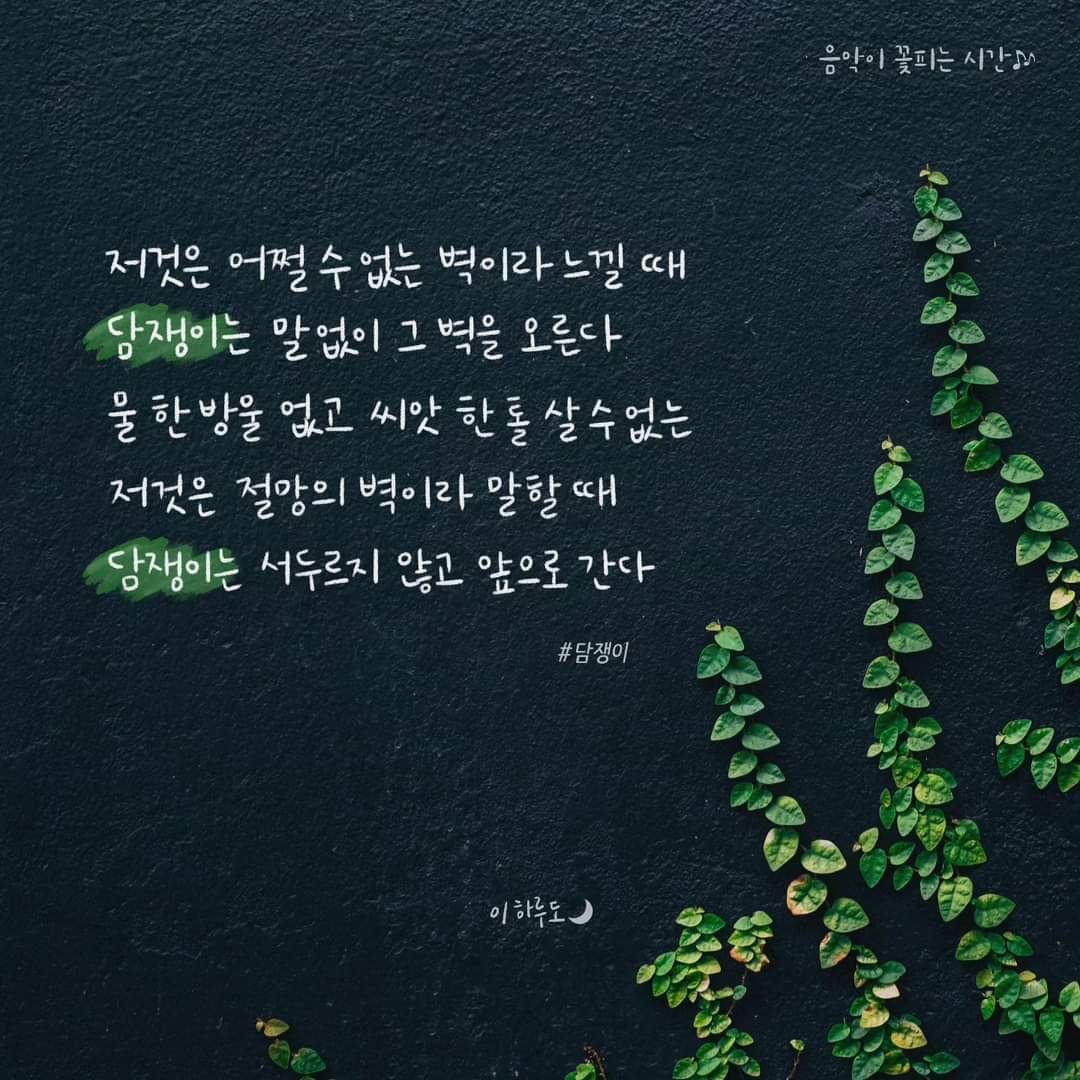 음악이 꽃피는 시간♫
저것은 어쩔 수 없는 벽이라 느낄 때
담쟁이는 말없이 그 벽을 오른다
물 한 방울 없고 씨앗 한 톨 살 수 없는
저것은 절망의 벽이라 말할 때
담쟁이는 서두르지 않고 앞으로 간다
#담쟁이
이 하루도